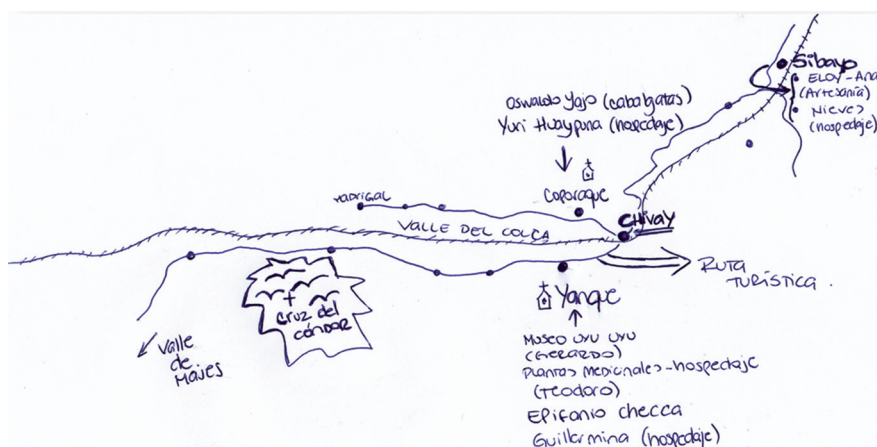 Sibayo
Eloy-Ana
(Artesanía)
Nieves
(hospedaje)
Oswaldo Yajo (cabalgatas)
Yuri Huaypuna (hospedaje)
Coporaque
Madrigal
VALLE DEL COLCA
CHIVAY
RUTA
TURÍSTICA.
Cruz del
CÓNDOR
Valle
de
Majes
Yanque
Museo UYU UYU
(GERARDO)
Plantas Medicinales-hospedaje
(Teodoro)
Epifanio checca
Guillermina (hospedaje)